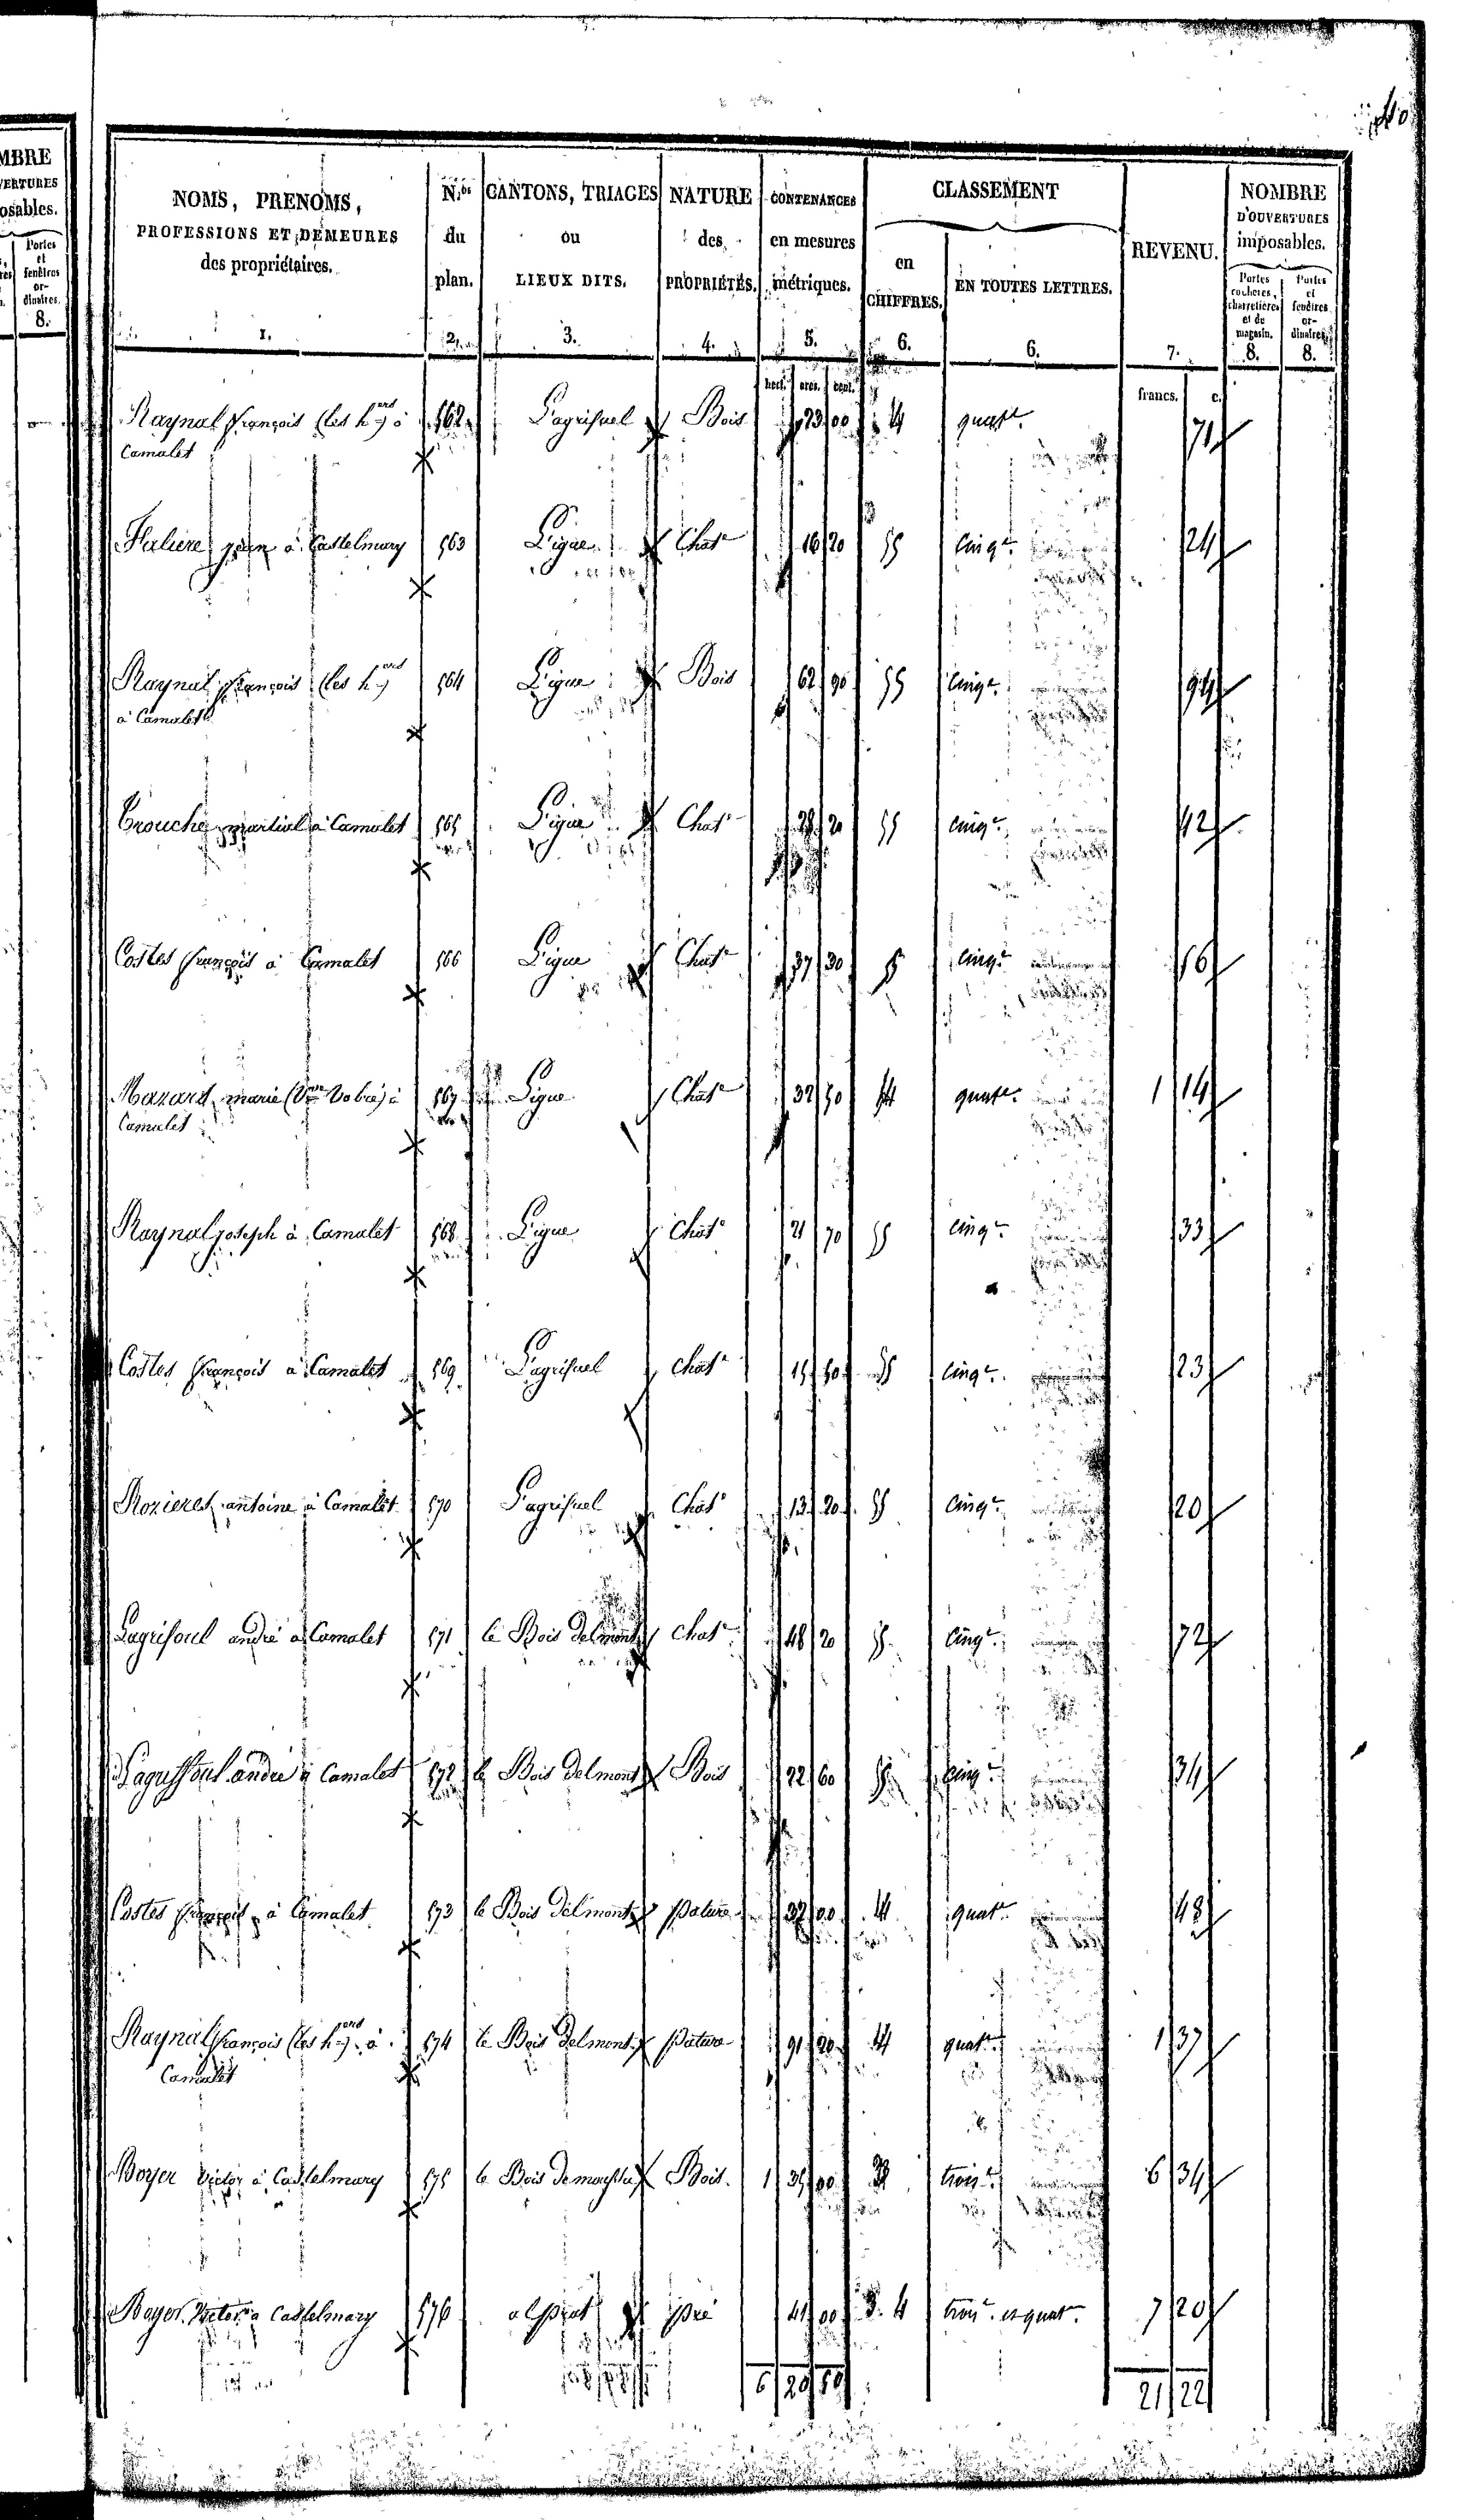 40
MBRE
VERTURES
osables.
Portes
et
fenêtres
or-
dinaires.
8.
NOMS, PRENOMS,
PROFESSIONS ET DEMEURES
des propriétaires.
1.
N.os
du
plan.
2.
CANTONS, TRIAGES
ou
LIEUX DITS.
3.
NATURE
des
PROPRIÉTÉS.
4.
CONTENANCES
en mesures
métriques.
5.
CLASSEMENT
en
CHIFFRES.
6.
EN TOUTES LETTRES.
6.
REVENU.
7.
NOMBRE
D'OUVERTURES
imposables.
Portes
cochères,
charretières
et de
magasin.
8.
Portes
et
fenêtres
or-
dinaires.
8.
hect. ares. cent. francs. c.
Raynal françois (les h.ers) à 562 Lagrifuel Bois 73 00 4 quatre 71
Camalet
jean à Castelmary 563 Ligue Chat.e 16 20 5 cinq.e 24
Raynal françois (les h.ers) 564 Ligue Bois 62 90 5 cinq.e 94
à Camalet
Crouche martial à Camalet 565 Ligue Chat.e 28 20 5 cinq.e 42
Costes françois à Camalet 566 Ligue Chat.e 37 30 5 cinq.e 56
Mazars marie (V.ve Vabre) à 567 Ligue Chat.e 32 50 4 quatr.e 1 14
Camalet
Raynal joseph à Camalet 568 Ligue Chat.e 21 70 5 cinq.e 33
Costes françois à Camalet 569 Lagrifuel Chat.e 15 50 5 cinq.e 23
Rozieres antoine à Camalet 570 Lagrifuel Chat.e 13 20 5 cinq.e 20
Lagrifoul andré à Camalet 571 le Bois delmont Chat.e 48 20 5 cinq.e 72
andré à Camalet 572 le Bois delmont Bois 22 60 5 cinq.e 34
Costes françois à Camalet 573 le Bois delmont pature 32 00 4 quat.e 48
Raynal françois (les h.ers) à 574 le Bois delmont pature 91 20 4 quat.e 1 37
Camalet
Boyer Victor à Castelmary 575 le Bois Bois 1 35 00 3 trois.e 6 34
Boyer Victor à Castelmary 576 pré 41 00 3. 4 trois.e et quat.e 7 20
6 29 50 21 22